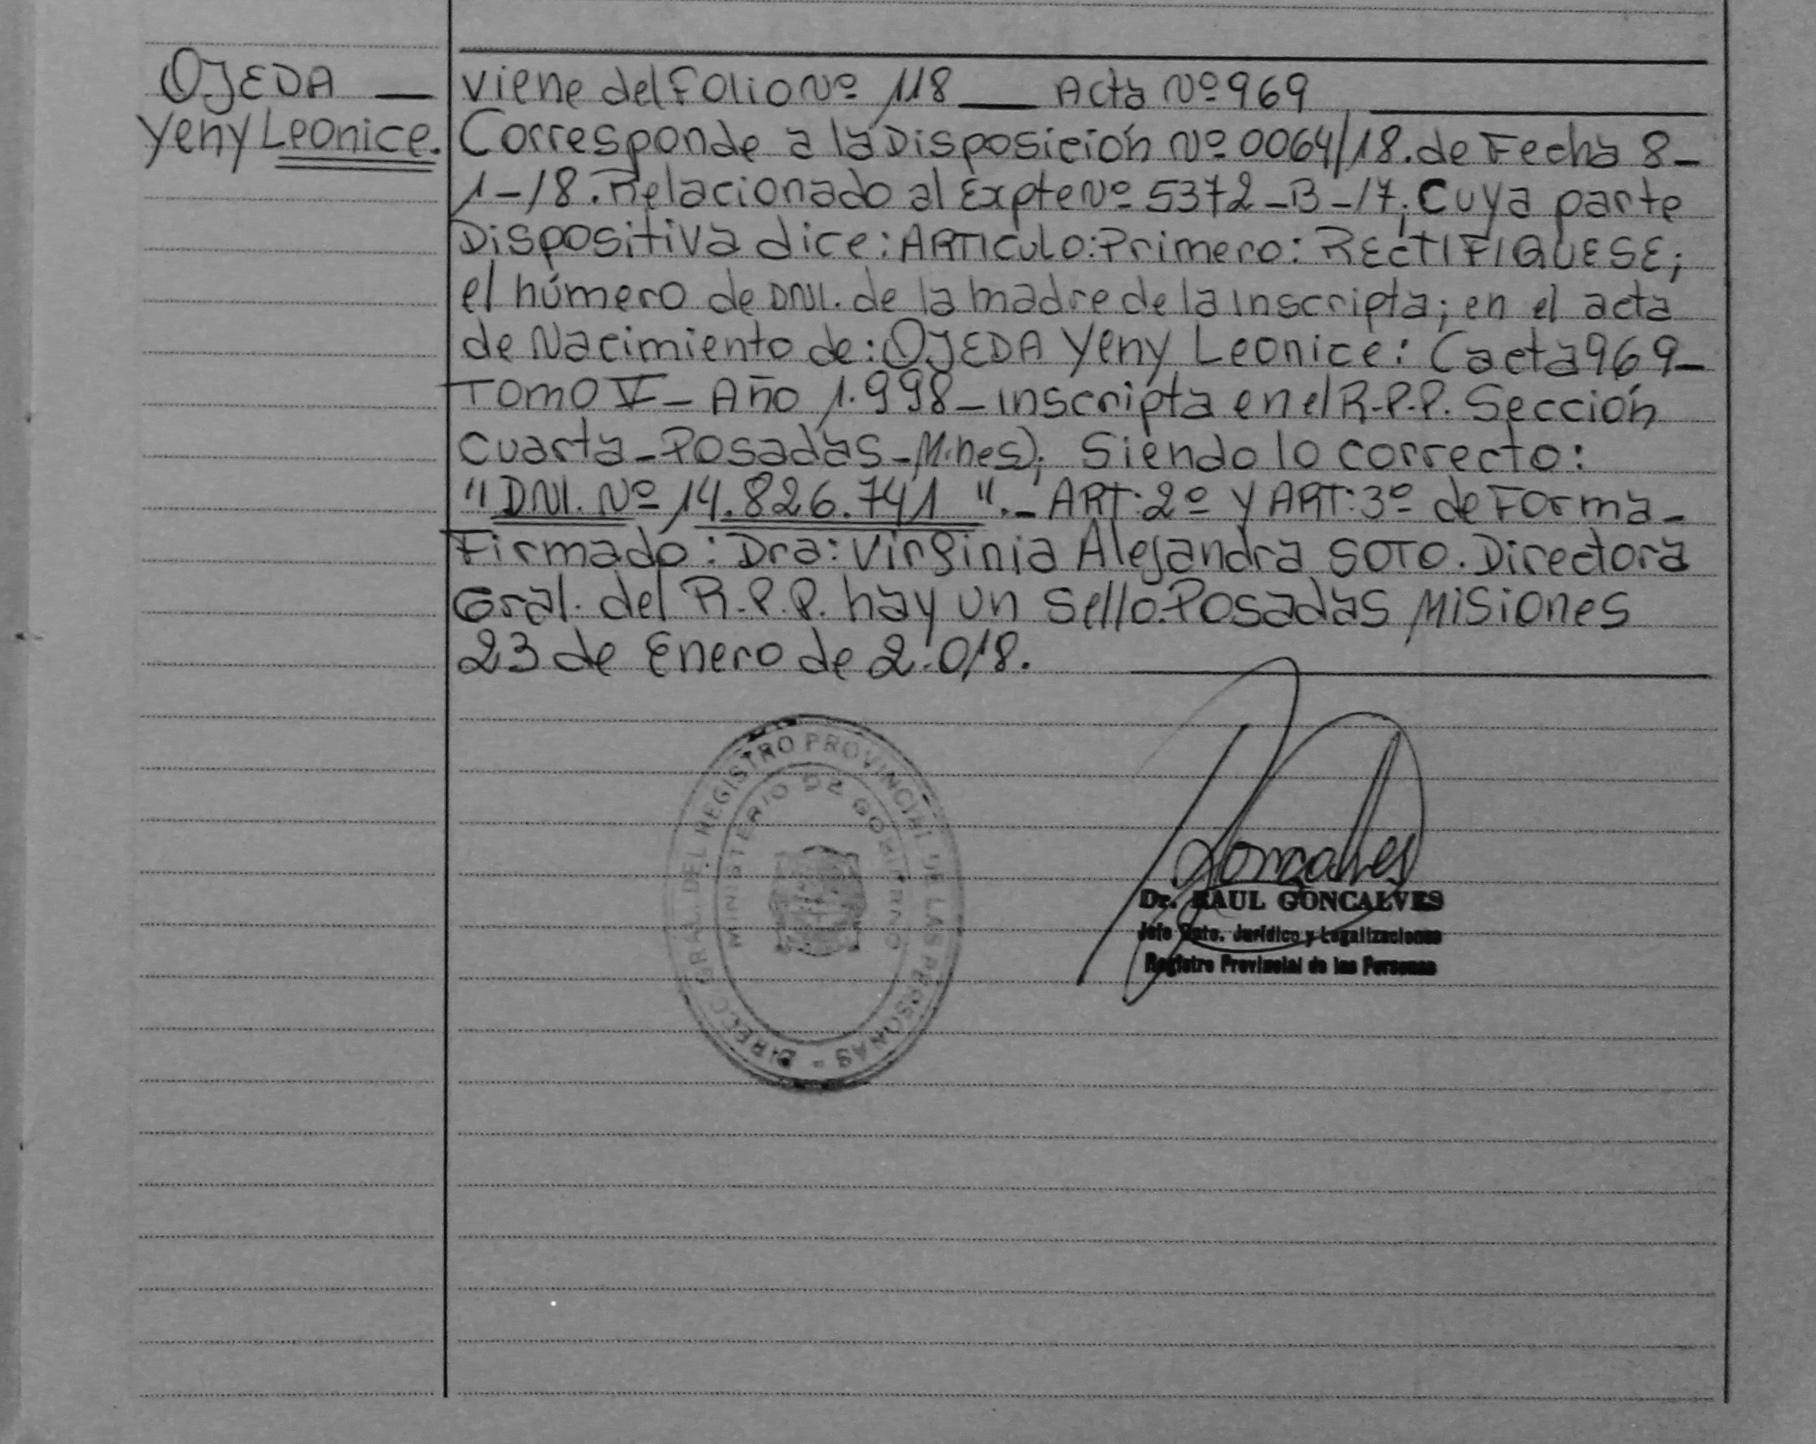 OJEDA
Yeny Leonice.
Viene del Folio Nº 118 Acta Nº 969
Corresponde a la Disposición Nº 0064/18. de Fecha 8-
1-18. Relacionado al Expte Nº 5372-B-17; Cuya parte
Dispositiva dice: ARTICULO: Primero: RECTIFIQUESE;
el número de DNI. de la madre de la inscripta; en el acta
de Nacimiento de: OJEDA Yeny Leonice: (acta 969-
TOMO V - Año 1.998 - inscripta en el R.P.P. Sección
Cuarta - Posadas - Mnes); Siendo lo correcto:
"DNI. Nº 14.826.741". - ART: 2º y ART: 3º de Forma -
Firmado: Dra: Virginia Alejandra SOTO. Directora
Gral. del R.P.P. hay un Sello. Posadas Misiones
23 de Enero de 2.018.
DIRECC. GRAL. DEL REGISTRO PROVINCIAL DE LAS PERSONAS -
MINISTERIO DE GOBIERNO
Goncalves
Dr. RAUL GONCALVES
Jefe Dpto. Jurídico y Legalizaciones
Registro Provincial de las Personas